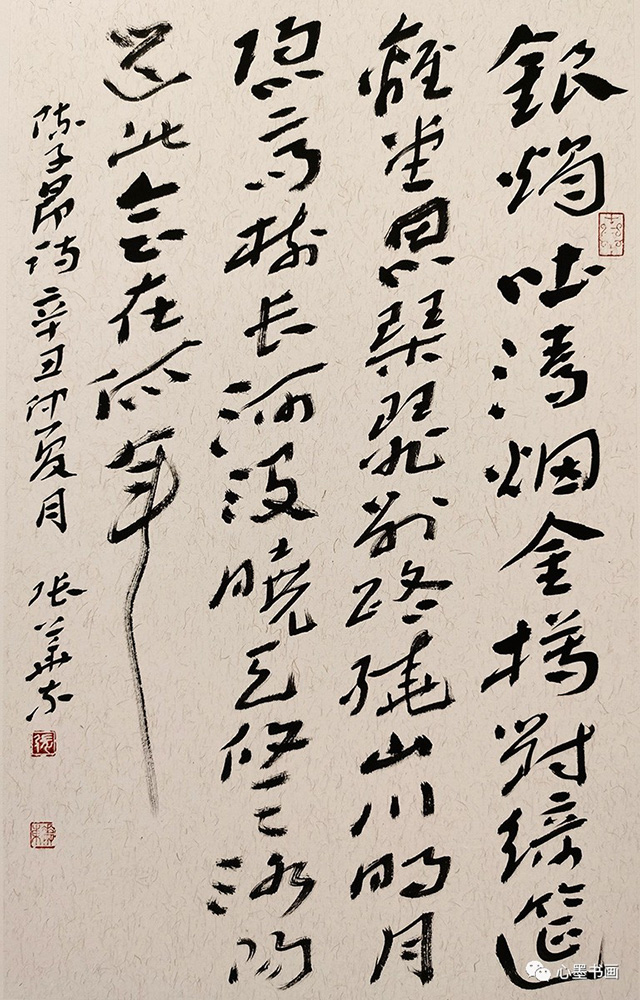 銀燭吐清烟金樽對綺筵
離堂思琴瑟別路繞山川明月
隱高樹長河没曉天悠〻洛陽
道此會在何年
陳子昂詩辛丑仲夏月 張
心墨书画